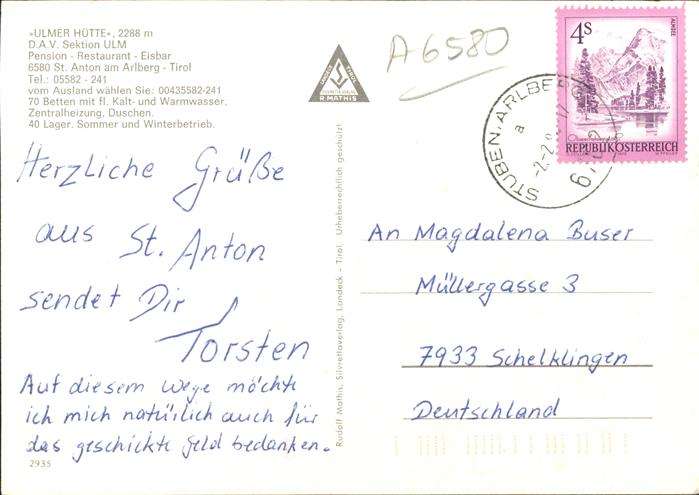 »ULMER HÜTTE«, 2288 m
D.A.V. Sektion ULM
Pension - Restaurant - Eisbar
6580 St. Anton am Arlberg - Tirol
Tel.: 05582 - 241
vom Ausland wählen Sie: 00435582-241
70 Betten mit fl. Kalt- und Warmwasser,
Zentralheizung, Duschen.
40 Lager. Sommer und Winterbetrieb.
R. MATHIS
A6580
4S
ALMSEE
REPUBLIK ÖSTERREICH
STUBEN, ARLBERG
a
Herzliche Grüße
aus St. Anton
sendet Dir
Torsten
Auf diesem wege möchte
ich mich natürlich auch für
das geschickte Geld bedanken.
2935
Rudolf Mathis, Silvrettaverlag, Landeck - Tirol. Urheberrechtlich geschützt!
An Magdalena Buser
Müllergasse 3
7933 Schelklingen
Deutschland